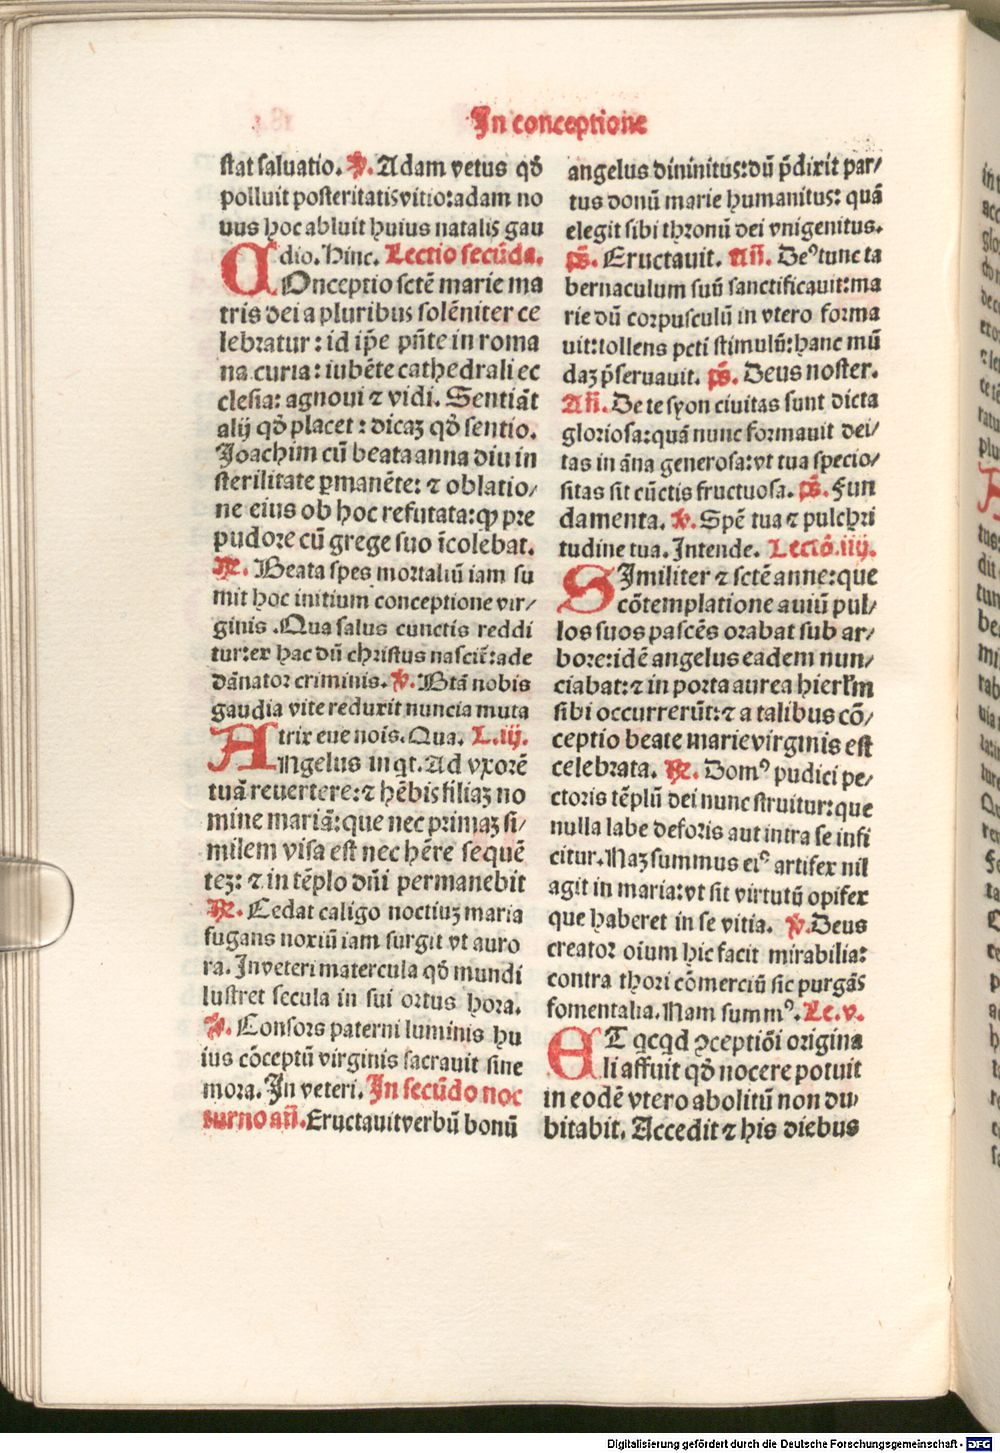 In conceptione
stat saluatio. ℣. Adam vetus qđ
polluit posteritatis vitio: adam no
uus hoc abluit huius natalis gau
dio. Hinc. Lectio secūda.
COnceptio sctē marie ma
tris dei a pluribus solēniter ce
lebratur: id ip̄e pñte in roma
na curia: iubēte cathedrali ec
clesia: agnoui ⁊ vidi. Sentiāt
alij qđ placet: dicaꝫ qđ sentio.
Joachim cū beata anna diu in
sterilitate ꝑmanēte: ⁊ oblatio/
ne eius ob hoc refutata: ꝙ pre
pudore cū grege suo īcolebat.
℟. Beata spes mortaliū iam su
mit hoc initium conceptione vir/
ginis. Qua salus cunctis reddi
tur: ex hac dū christus nascit̄: ade
dānator criminis. ℣. Btā nobis
gaudia vite reduxit nuncia muta
trix eue nois. Qua. L.iij.
ANgelus inqt. Ad vxorē
tuā reuertere: ⁊ hēbis filiaꝫ no
mine mariā: que nec primaꝫ si/
milem visa est nec hēre sequē
teꝫ: ⁊ in tēplo dñi permanebit
℟. Cedat caligo noctiuꝫ maria
fugans noxiū iam surgit vt auro
ra. In veteri matercula qđ mundi
lustret secula in sui ortus hora.
℣. Consors paterni luminis hu
ius cōceptū virginis sacrauit sine
mora. In veteri. In secūdo noc
turno añ. Eructauit verbū bonū
angelus diuinitus: dū p̄dixit par/
tus donū marie humanitus: quā
elegit sibi thronū dei vnigenitus.
ps̄. Eructauit. Añ. Deꝰ tunc ta
bernaculum suū sanctificauit: ma
rie dū corpusculū in vtero forma
uit: tollens pcti stimulū: hanc mū
daꝫ p̄seruauit. ps̄. Deus noster.
Añ. De te syon ciuitas sunt dicta
gloriosa: quā nunc formauit dei/
tas in āna generosa: vt tua specio/
sitas sit cūctis fructuosa. ps̄. Fun
damenta. ℣. Spē tua ⁊ pulchri
tudine tua. Intende. Lectō.iiij.
SImiliter ⁊ sctē anne: que
cōtemplatione auiū pul/
los suos pascēs orabat sub ar/
bore: idē angelus eadem nun/
ciabat: ⁊ in porta aurea hierłm
sibi occurrerūt: ⁊ a talibus cō/
ceptio beate marie virginis est
celebrata. ℟. Domꝰ pudici pe/
ctoris tēplū dei nunc struitur: que
nulla labe deforis aut intra se infi
citur. Naꝫ summus eiꝰ artifex nil
agit in maria: vt sit virtutū opifex
que haberet in se vitia. ℣. Deus
creator oium hic facit mirabilia:
contra thori cōmerciū sic purgās
fomentalia. Nam summꝰ. Le.v.
ET qcqd ꝯceptiōi origina
li affuit qđ nocere potuit
in eodē vtero abolitū non du/
bitabit. Accedit ⁊ his diebus
Digitalisierung gefördert durch die Deutsche Forschungsgemeinschaft - DFG